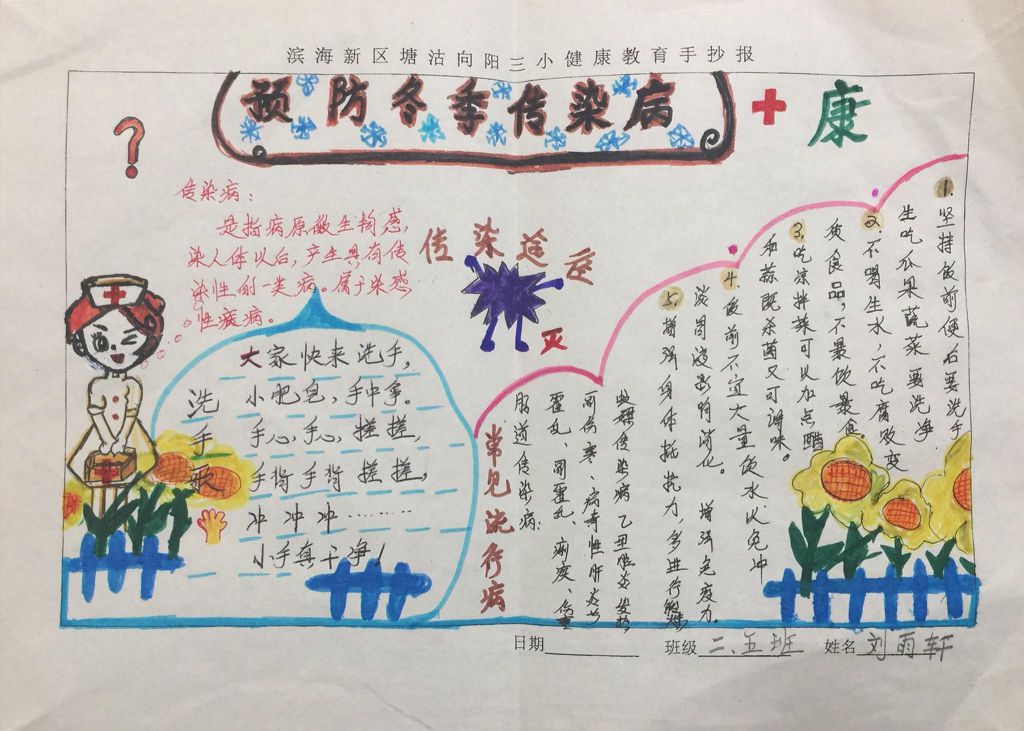 滨海新区塘沽向阳三小健康教育手抄报
预防冬季传染病
康
传染病：
是指病原微生物感，
染人体以后，产生具有传
染性的一类病。属于染感
性疲病。
传染途径
灭
洗手歌
大家快来洗手，
小肥皂，手中拿。
手心，手心，搓搓，
手背手背搓搓，
冲冲冲………
小手真干净！
常见流行病
肠道传染病：
霍乱、副霍乱、痢疾、伤寒
副伤寒、病毒性肝炎
1.坚持饭前便后要洗手
生吃瓜果蔬菜要洗净
2.不喝生水，不吃腐败变
质食品，不暴饮暴食。
3.吃凉拌菜可以加点醋
和蒜既杀菌又可调味。
4.饭前不宜大量饮水以免冲
淡胃液影响消化。增强免疫力。
5.增强身体抵抗力，多进行锻炼
日期
班级 二、五班
姓名 刘雨轩